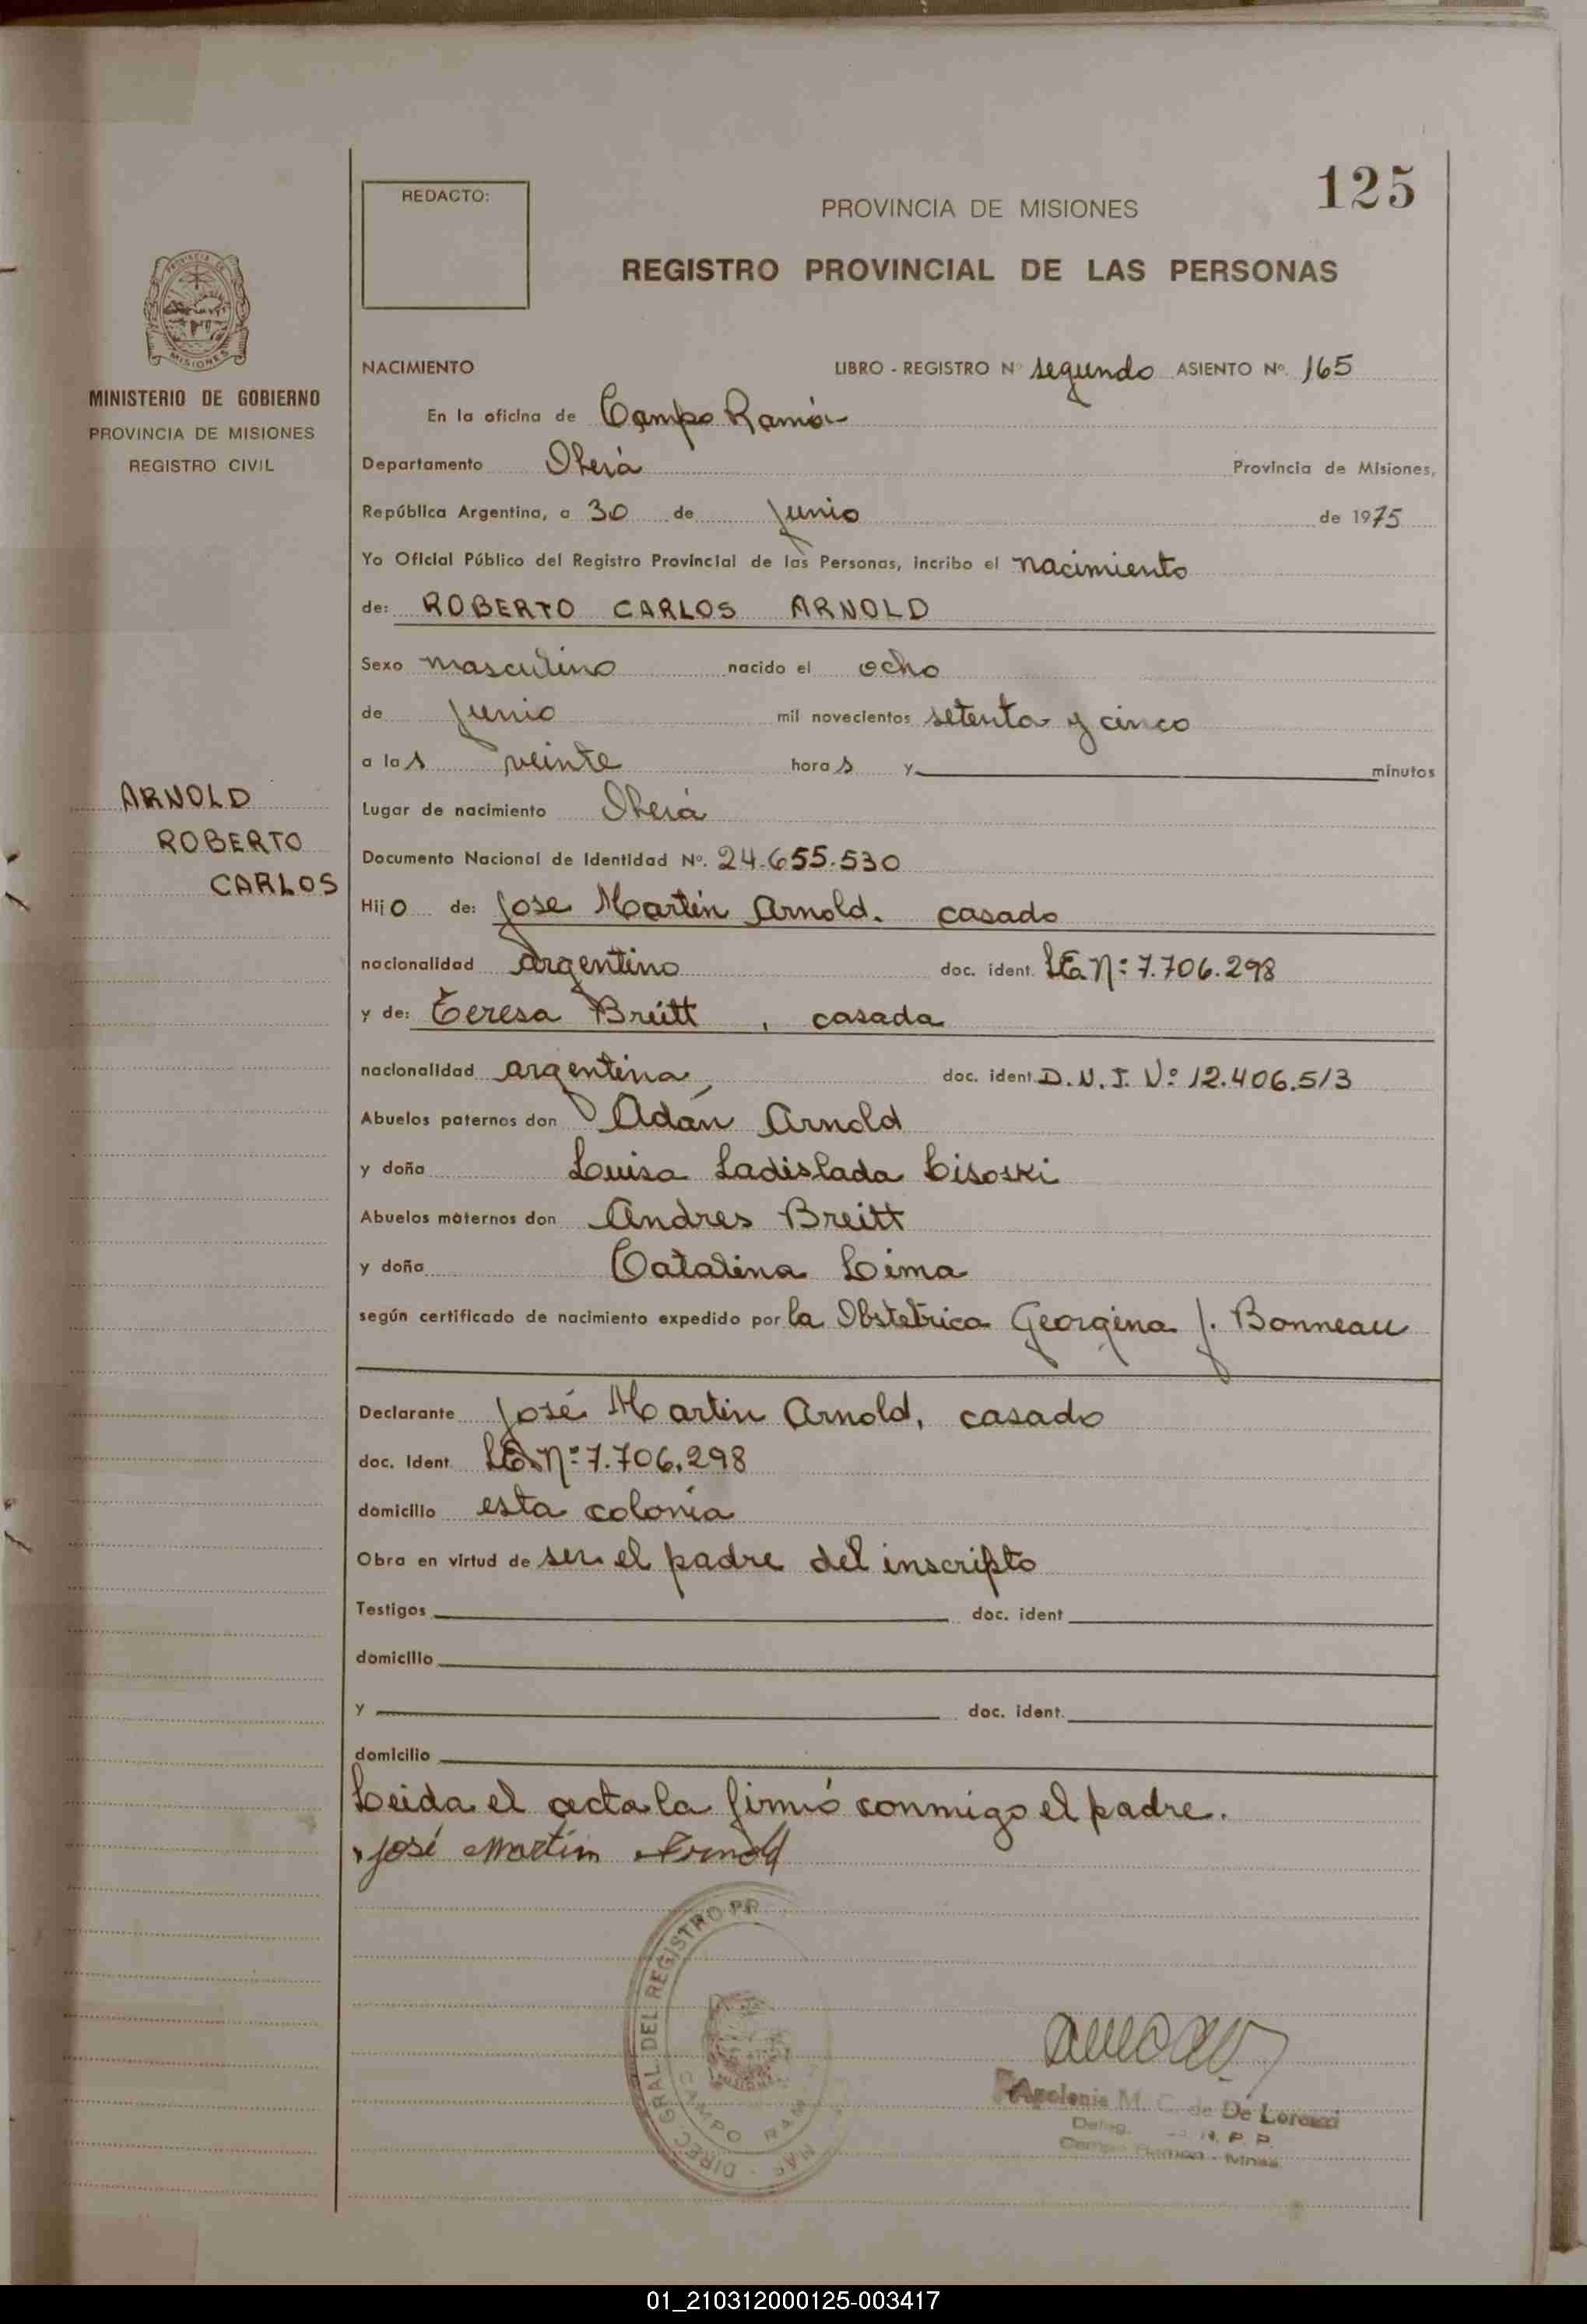 125
REDACTO:
PROVINCIA DE MISIONES
REGISTRO PROVINCIAL DE LAS PERSONAS
MISIONES
MINISTERIO DE GOBIERNO
PROVINCIA DE MISIONES
REGISTRO CIVIL
NACIMIENTO LIBRO - REGISTRO Nº segundo ASIENTO Nº. 165
En la oficina de Campo Ramón
Departamento Oberá Provincia de Misiones,
República Argentina, a 30 de junio de 1975
Yo Oficial Público del Registro Provincial de las Personas, incribo el nacimiento
de: ROBERTO CARLOS ARNOLD
Sexo masculino nacido el ocho
de junio mil novecientos setenta y cinco
a las veinte horas y minutos
ARNOLD
ROBERTO
CARLOS
Lugar de nacimiento Oberá
Documento Nacional de Identidad Nº. 24.655.530
Hijo de: Jose Martin Arnold. casado
nacionalidad argentino doc. ident. L.E. Nº: 7.706.298
y de: Teresa Breitt, casada
nacionalidad argentina, doc. ident. D.N.I. Nº: 12.406.513
Abuelos paternos don Adán Arnold
y doña Luisa Ladislada Lisoski
Abuelos maternos don Andres Breitt
y doña Catalina Lima
según certificado de nacimiento expedido por la Obstetrica Georgina J. Bonneau
Declarante José Martin Arnold, casado
doc. Ident. L.E. Nº: 7.706.298
domicilio esta colonia
Obra en virtud de ser el padre del inscripto
Testigos doc. ident
domicilio
y doc. ident.
domicilio
Leida el acta la firmó conmigo el padre.
José Martin Arnold
DIREC. GRAL DEL REGISTRO PR
CAMPO RAM
Apolonia M. C. de De Lorenzi
Deleg. R. P. P.
Campo Ramon - Mnes
01_210312000125-003417